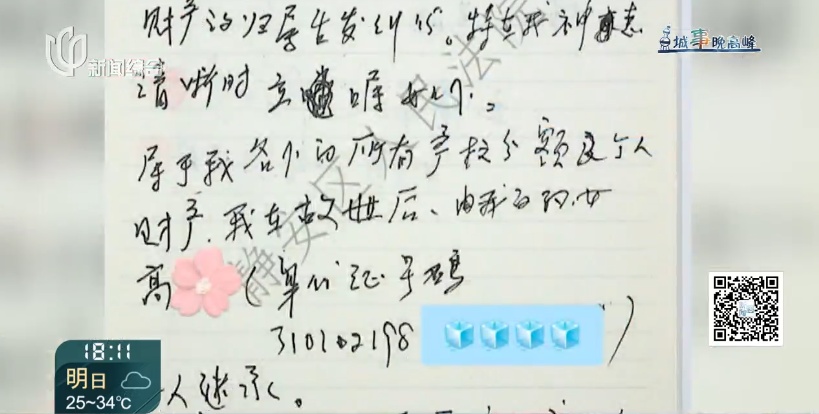 财产的归属生发纠纷。特在我神志
清晰时立嘱如下。
属于我名下的所有产权份额及个人
财产,我在故世后、由我的孙女
高 (身份证号码
310102198 )
人继承。
静安区人民法院
新闻综合
城事晚高峰
18:11
明日
25~34℃